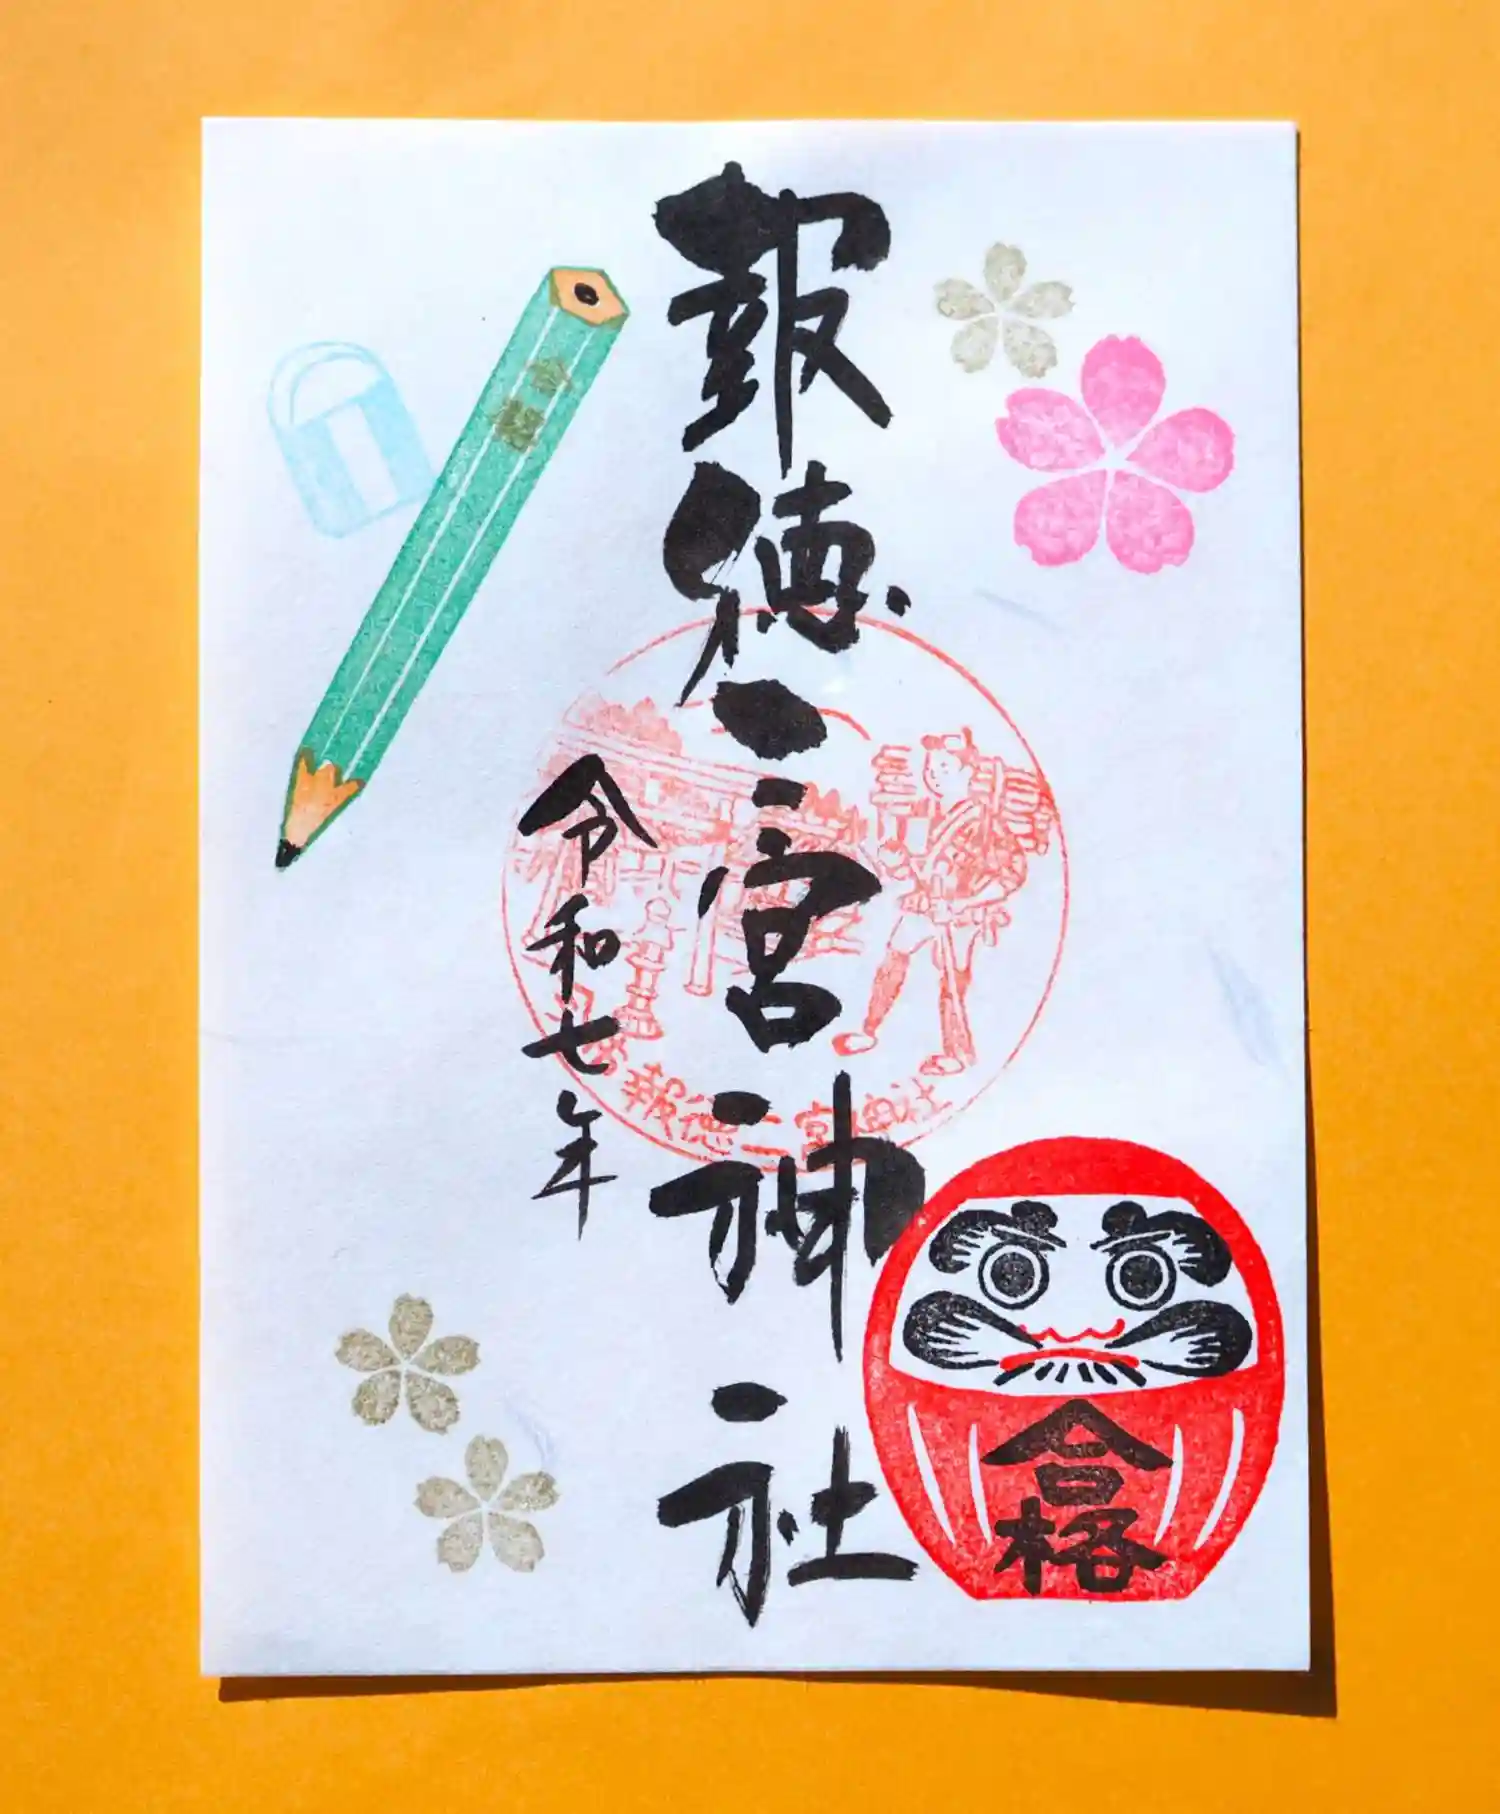 報徳二宮神社
令和七年
合格
報徳二宮神社
合格